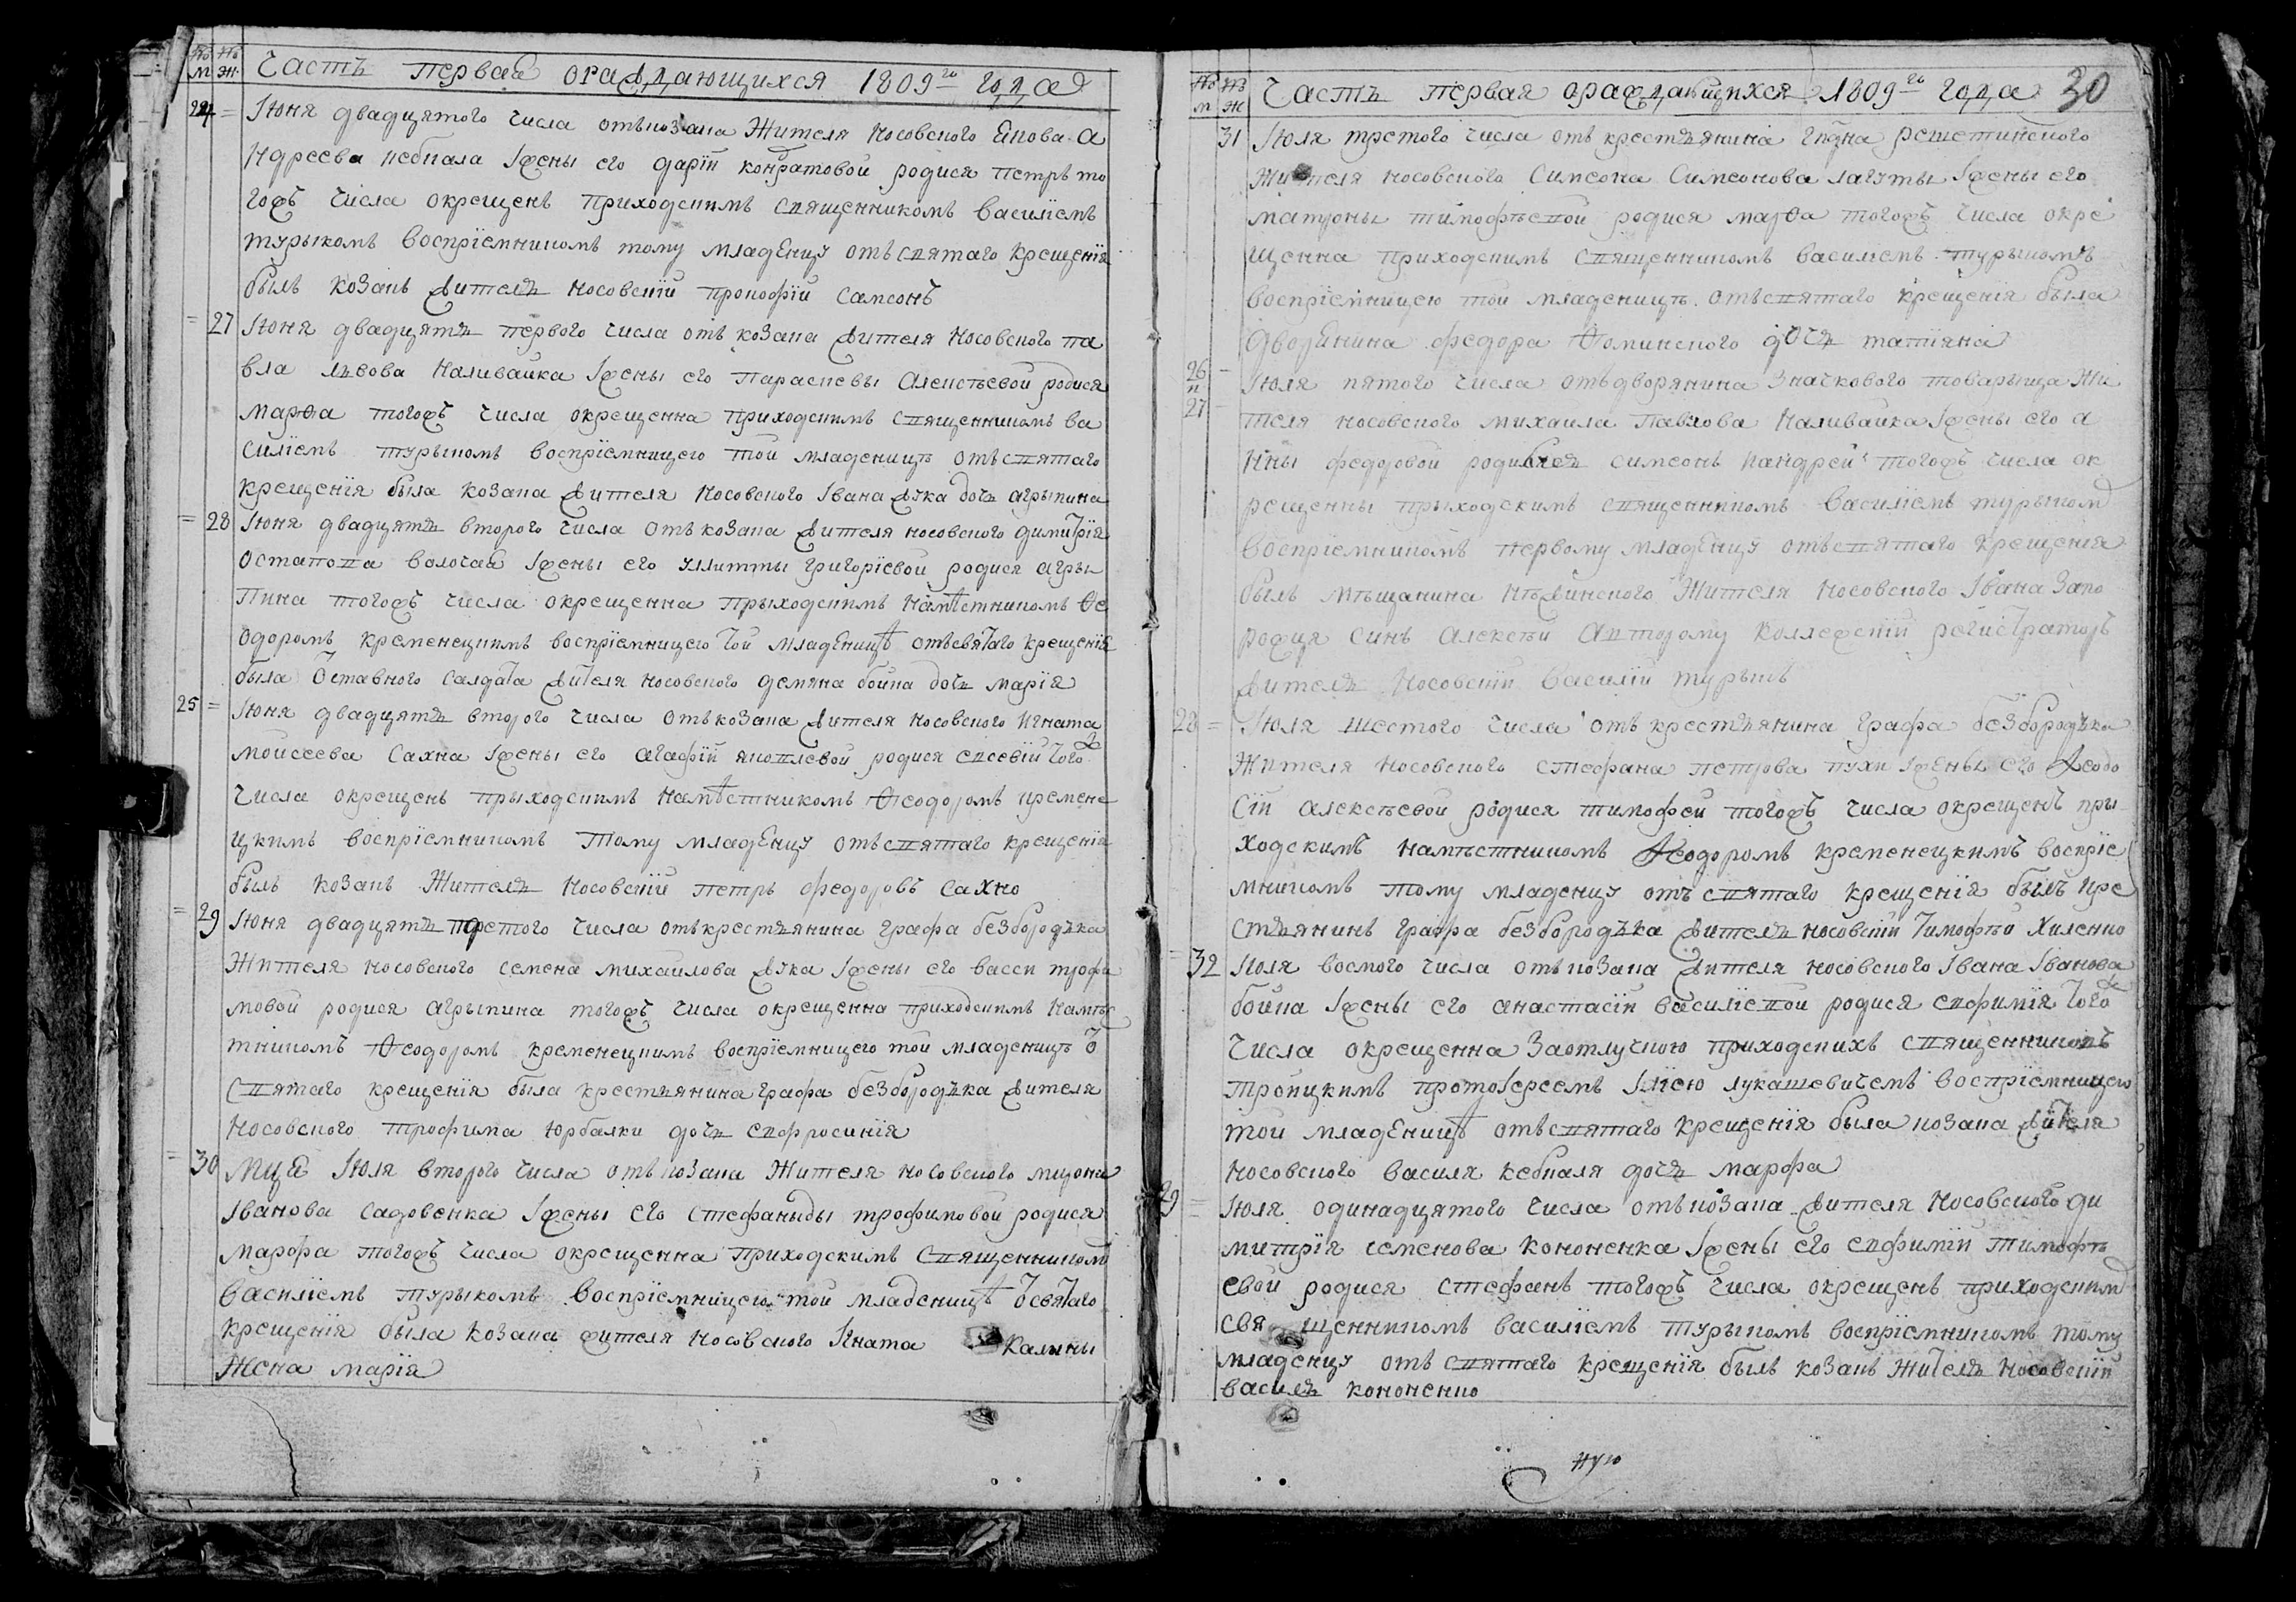 № М № Ж Часть первая ораждающихся 1809го года
24 = Июня двадцятого числа отъкозака Жителя Носовского Якова А
ндреева Кебкала Iжены его дарïи кондратовой родися петръ то
гожъ числа окрещенъ приходскимъ священникомъ василïемъ
турыкомъ восприемникомъ тому младенцу отъ святаго крещенïя
былъ козакъ житель носовскïй прокофïй самсонъ
= 27 Июня двадцять первого числа отъ козака жителя Носовского па
вла львова Наливайка Iжены его Параскевы Алексѣевой родися
марθа тогожъ числа окрещенна приходскимъ священникомъ ва
силïемъ турыкомъ восприемницею той младеницѣ отъ святаго
крещенïя была козака жителя Носовского Iвана жука дочь агрыпина
= 28 Июня двадцять второго числа отъ козака жителя носовского димитрïя
остапова волочая Iжены его улитты григорïевой родися агры
пина тогожъ числа окрещенна прыходскимъ намѣстникомъ Ѳе
одоромъ кременецкимъ восприемницею той младеницѣ отъ святаго крещенïя
была отставного салдата жителя носовского демяна бойка дочь марïя
25 = Июня двадцять второго числа отъ козака жителя носовского игната
моисеева Сахна Iжены его агафïи яковлевой родися евсевïй тогож
числа окрещенъ прыходскимъ намѣстникомъ Ѳеодоромъ кремене
цкимъ восприемникомъ тому младенцу отъ святаго крещенïя
былъ козакъ Житель Носовскïй петръ федоровъ Сахно
= 29 Июня двадцять третого числа отъ крестьянина графа безбородька
Жителя носовского семена михайлова жука Iжены его васси трофи
мовой родися агрыпина тогожъ числа окрещенна приходскимъ намѣс
тникомъ Ѳеодоромъ кременецкимъ восприемницею той младеницѣ от
святаго крещенïя была крестьянина графа безбородька жителя
Носовского Трофима Юрбалки дочь евфросинïя
= 30 Мца Июля второго числа отъ козака Жителя носовского мирона
Iванова садовенка Iжены его стефаныды трофимовой родися
марфа тогожъ числа окрещенна приходскимъ священникомъ
василïемъ турыкомъ восприемницею той младеницѣ от святаго
крещенïя была козака жителя носовского Игната Калины
Жена марïя
№ М № Ж Часть первая ораждающихся 1809го года 30
31 Июля третого числа отъ крестьянина решетинского
Жителя носовского Симеона Симеонова лагуты Iжены его
матроны тимофѣевой родися марθа тогожъ числа окре
щенна приходскимъ священникомъ василïемъ турыкомъ
восприемницею той младеницѣ отъ святаго крещенïя была
дворянина федора Ѳоминского дочь татïяна
26 и 27 = Июля пятого числа отъ дворянина значкового товарыща жи
теля носовского михаила павлова Наливайка Iжены его а
нны федоровой родилися симеонъ и андрей тогожъ числа ок
рещенны прыходскимъ священникомъ василïемъ турыком
восприемникомъ первому младенцу отъ святаго крещенïя
былъ мѣщанина нѣжинского Жителя Носовского Iвана Запо
рожця синъ Алексѣй а второму коллежскïй регистраторъ
жытель Носовскïй василïй турыкъ
28 = Июля шестого числа отъ крестьянина графа безбородька
Жителя носовского стефана петрова пухи Iжены его Ѳеодо
сïи алексѣевой родися тимофей тогожъ числа окрещенъ пры
ходскимъ намѣстникомъ Ѳеодоромъ кременецкимъ восприе
мникомъ тому младенцу отъ святаго крещенïя былъ кре
стьянинъ графа безбородька житель носовскïй Тимофѣй Хиленко
= 32 Июля восмого числа отъ козака жителя носовского Iвана Iванова
бойка Iжены его анастасïи василïевой родися евфимïя тогож
числа окрещенна за отлучкою приходскихъ священниковъ
тройцкимъ протоIереемъ Iлïею лукашевичемъ восприемницею
той младеницѣ отъ святаго крещенïя была козака жителя
носовского василя кебкаля дочь марфа
29 = Июля одинадцятого числа отъ козака жителя Носовского ди
митрïя семенова кононенка Iжены его евфимïи тимофѣ
евой родися стефанъ тогожъ числа окрещенъ приходским
священникомъ василïемъ турыкомъ восприемникомъ тому
младенцу отъ святаго крещенïя былъ козакъ житель носовскïй
василь кононенко